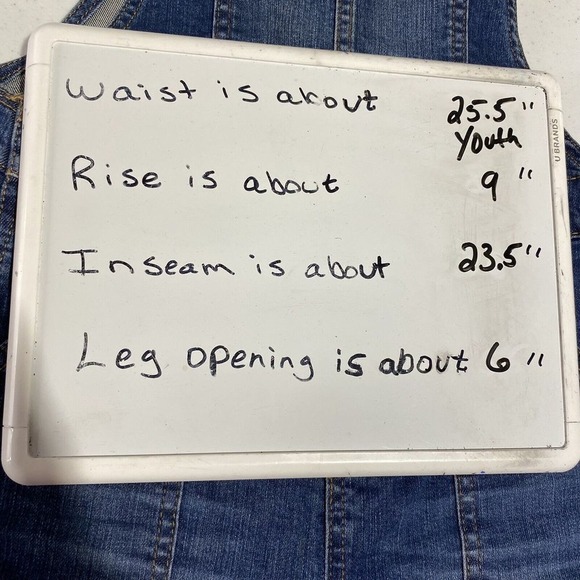 Waist is about 25.5"
Youth
Rise is about 9"
Inseam is about 23.5"
Leg opening is about 6"
U BRANDS